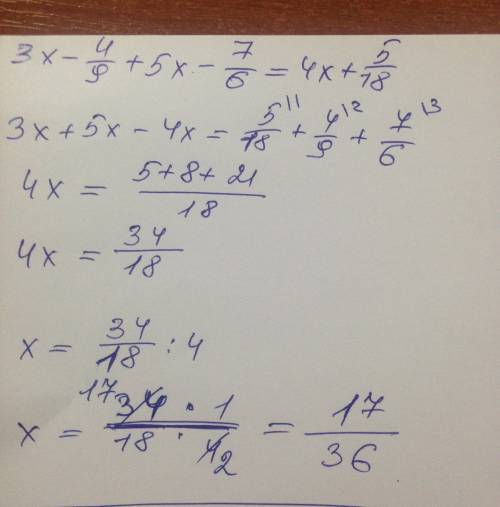 3x - 4/9 + 5x - 7/6 = 4x + 5/18
3x + 5x - 4x = 5/18 \1 + 4/9 \2 + 7/6 \3
4x = (5+8+21)/18
4x = 34/18
x = 34/18 : 4
x = 17 34 · 1 / 18 · 4 2 = 17/36